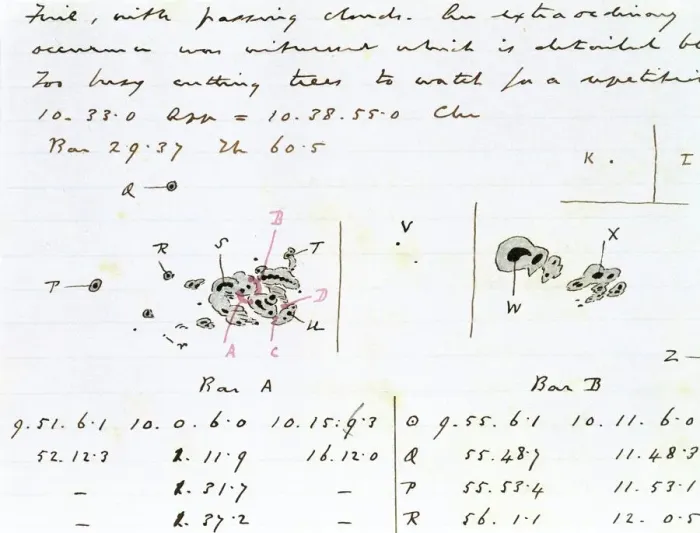 Fine, with passing clouds. An extraordinary
occurrence was witnessed which is detailed be
Too busy cutting trees to watch for a repetiti
10. 33. 0 App = 10. 38. 55. 0 Chr
Bar 29.37 Th 60.5
K I
Q
B
V
R S T X
P D
W
U
A C
Z
Bar A Bar B
9. 51. 6.1 10. 0. 6.0 10. 15. 9.3 ⊙ 9. 55. 6.1 10. 11. 6.0
52. 12.3 2. 11.9 16. 12.0 Q 55. 48.7 11. 48.3
– 2. 31.7 – P 55. 53.4 11. 53.1
– 2. 37.2 – R 56. 1.1 12. 0.5